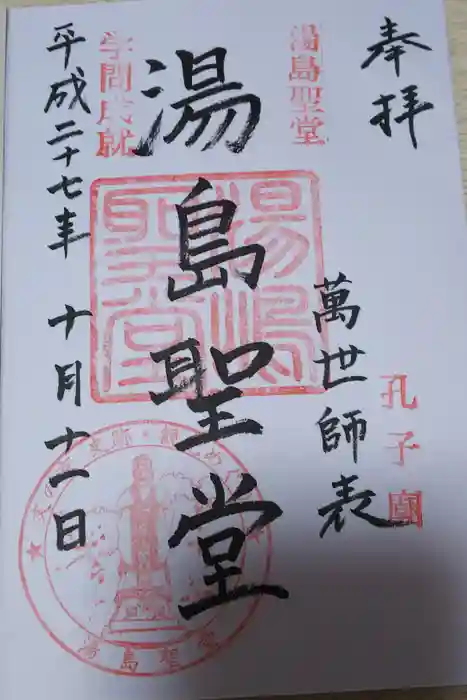 奉拝
孔子
萬世師表
湯島聖堂
湯島聖堂
学問成就
平成二十七年 十月十一日
湯島聖堂